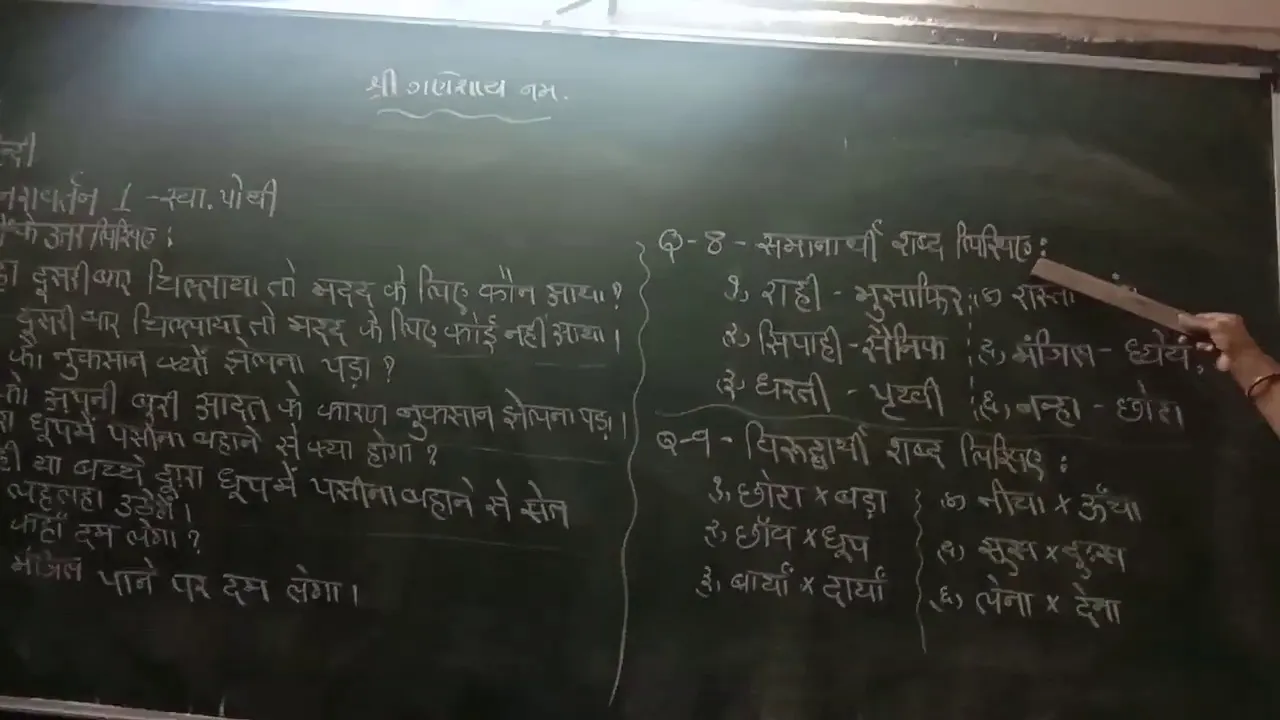 श्री गणेशाय नम.
न्दी
नरावर्तन 1 - स्वा. पोथी
के उत्तर लिखिए :
दूसरी बार चिल्लाया तो मदद के लिए कौन आया ?
दूसरी बार चिल्लाया तो मदद के लिए कोई नहीं आया ।
को नुकसान क्यों झेलना पड़ा ?
को अपनी बुरी आदत के कारण नुकसान झेलना पड़ा ।
धूप में पसीना बहाने से क्या होगा ?
ही या बच्चे द्वारा धूप में पसीना बहाने से खेत
लहलहा उठेंगे ।
कहाँ दम लेगा ?
मंजिल पाने पर दम लेगा ।
Q-8 - समानार्थी शब्द लिखिए :
१, राही - मुसाफिर ४) रास्ता
२, सिपाही - सैनिक ५, मंजिल - ध्येय,
३) धरती - पृथ्वी ६, नन्हा - छोटा
Q-9 - विरुद्धार्थी शब्द लिखिए :
१, छोटा × बड़ा ४) नीचा × ऊँचा
२, छाँव × धूप ५) सुख × दुःख
३, बायाँ × दायाँ ६) लेना × देना